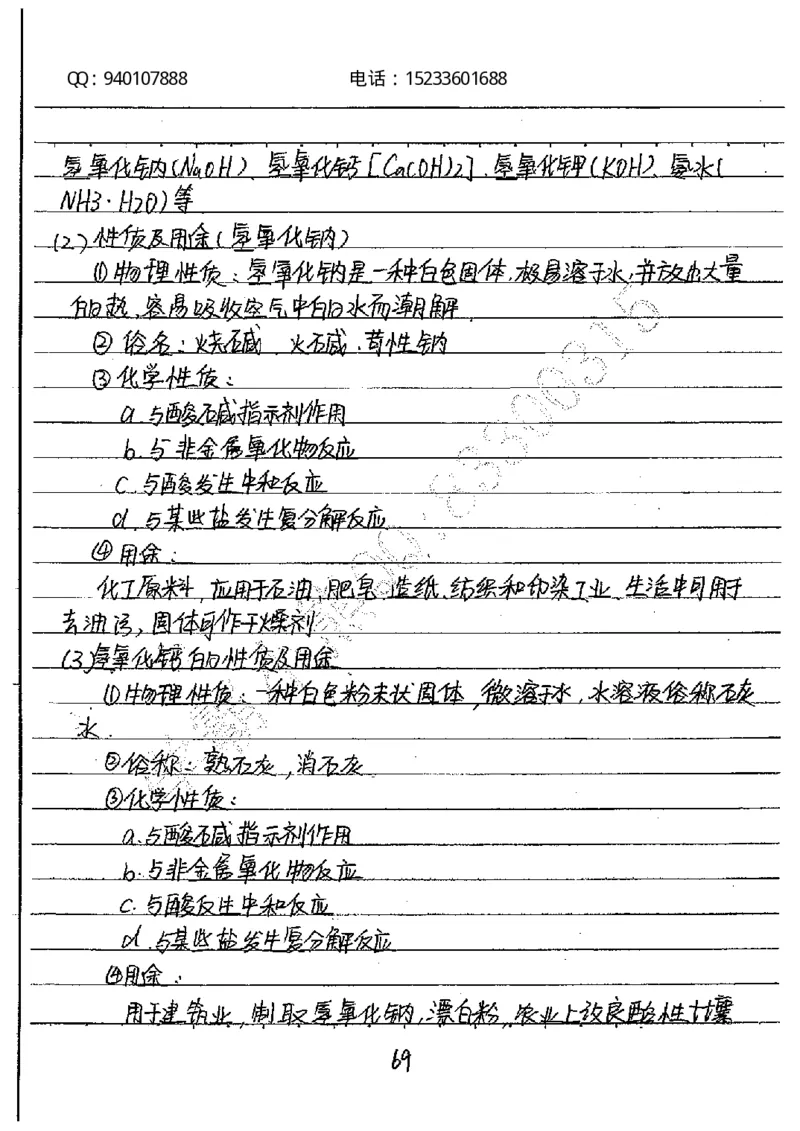 QQ：940107888 电话：15233601688
氢氧化钠(NaOH)、氢氧化钙[Ca(OH)2]、氢氧化钾(KOH)、氨水(
NH3·H2O)等
(2)性质及用途(氢氧化钠)
①物理性质：氢氧化钠是一种白色固体，极易溶于水，并放出大量
的热，容易吸收空气中的水而潮解
②俗名：烧碱、火碱、苛性钠
③化学性质：
a.与酸碱指示剂作用
b.与非金属氧化物反应
c.与酸发生中和反应
d.与某些盐发生复分解反应
④用途：
化工原料，应用于石油、肥皂、造纸、纺织和印染工业、生活中可用于
去油污，固体可作干燥剂
(3)氢氧化钙的性质及用途
①物理性质：一种白色粉末状固体，微溶于水，水溶液俗称石灰
水.
②俗称：熟石灰，消石灰
③化学性质：
a.与酸碱指示剂作用
b.与非金属氧化物反应
c.与酸反生中和反应
d.与某些盐发生复分解反应
④用途：
用于建筑业，制取氢氧化钠，漂白粉，农业上改良酸性土壤
69
QQ:83300315